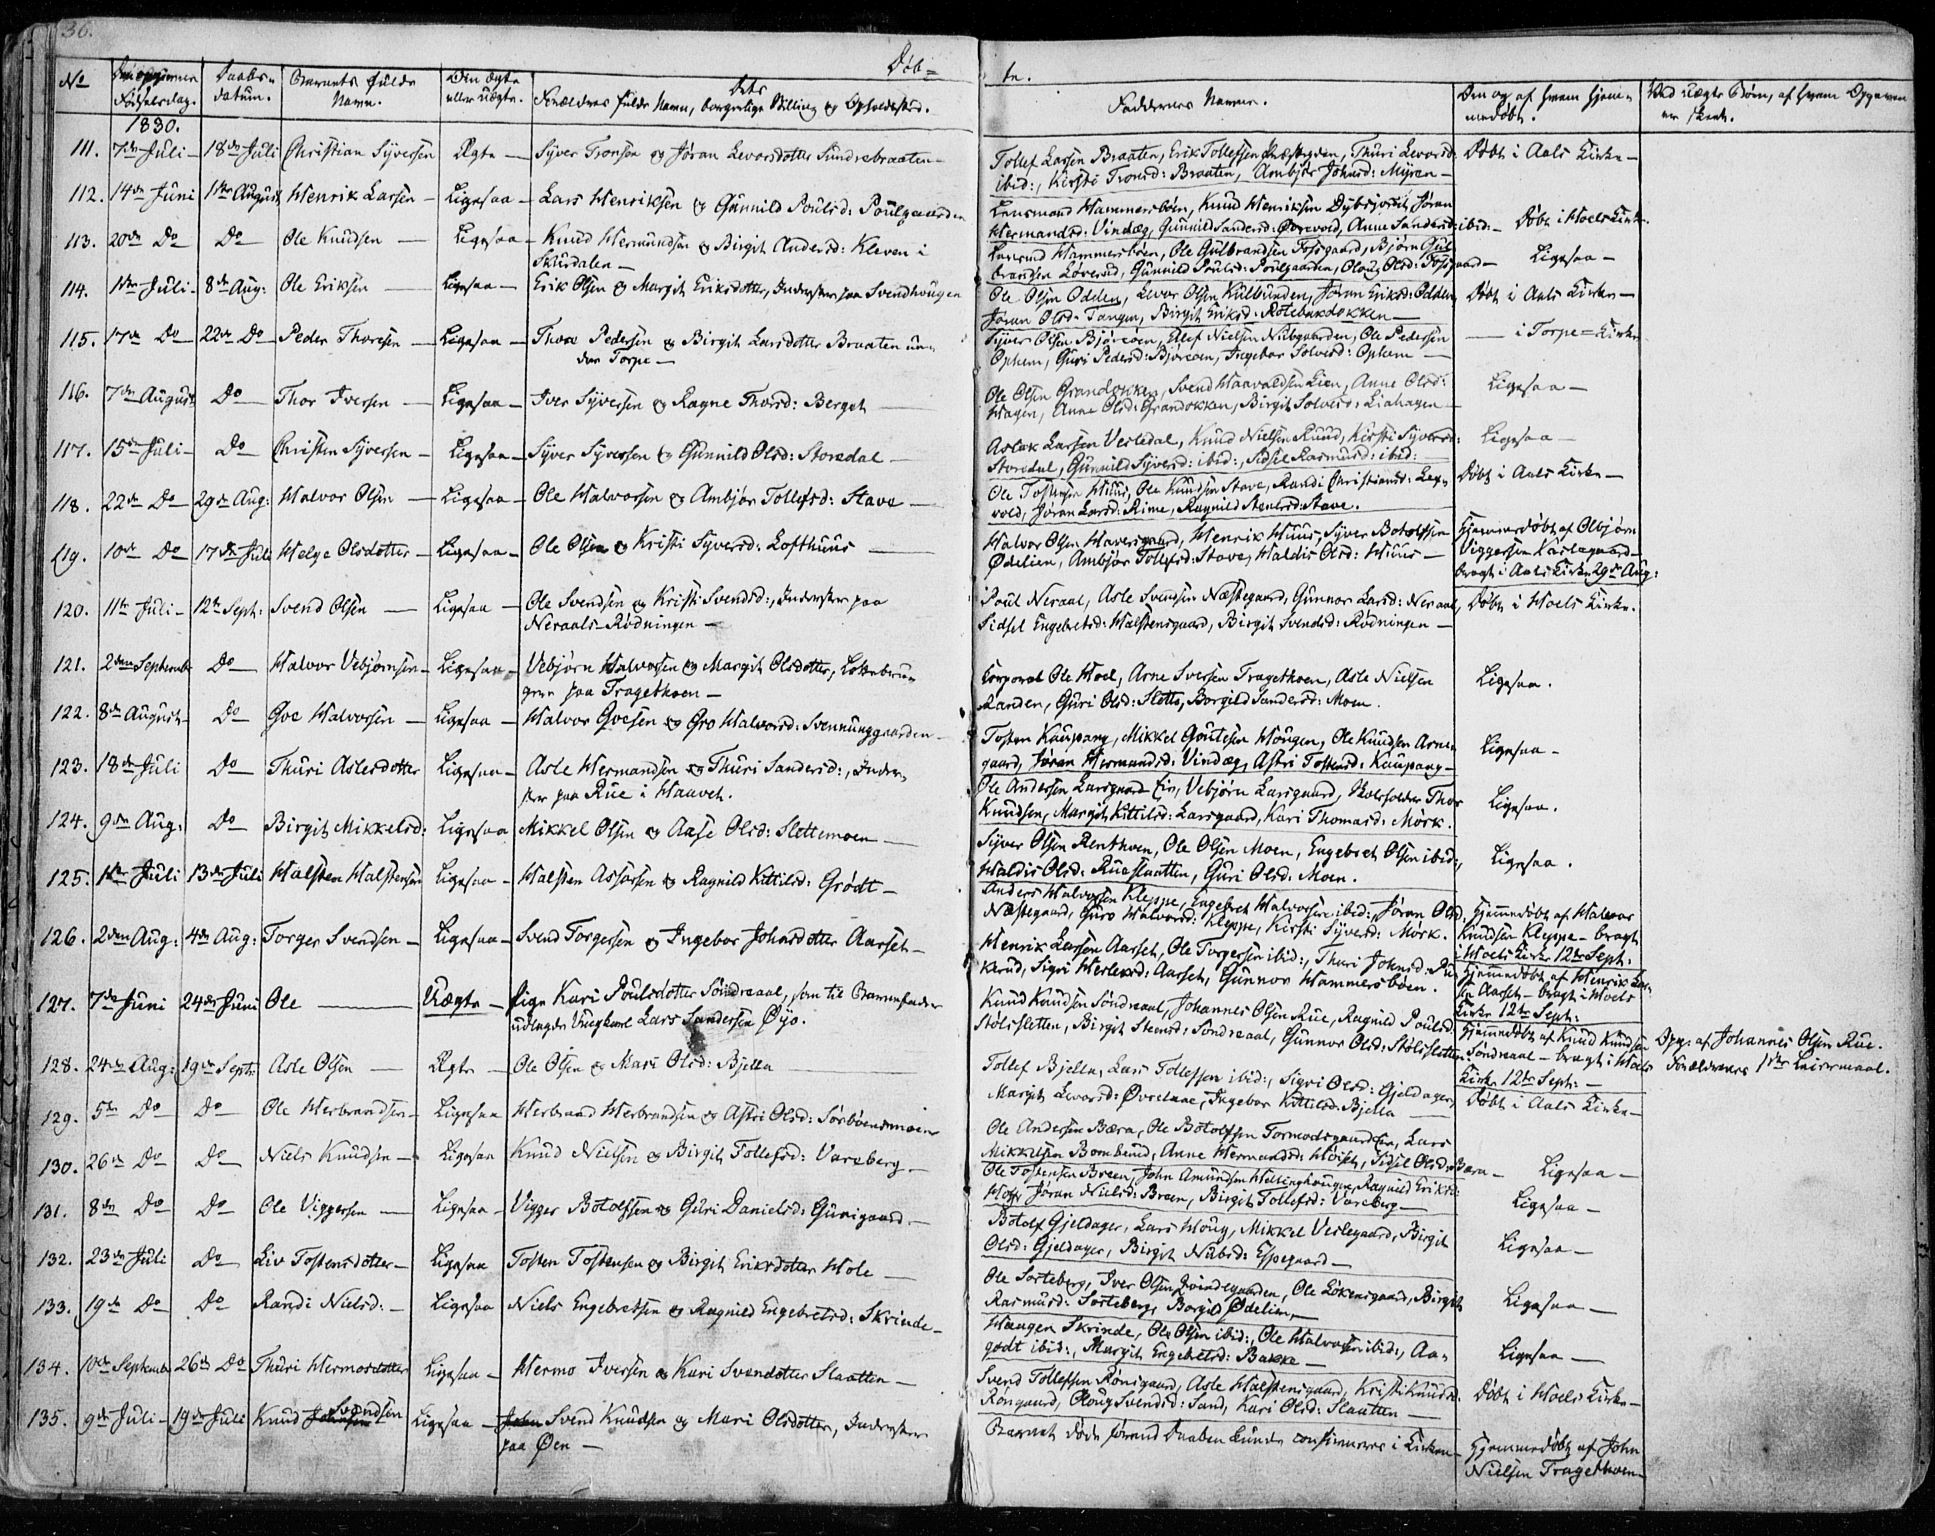 36.
Døb=
te.
No
Fødselsdag.
Daabs-
datum.
Barnets fulde
Navn.
Om ægte
eller uægte.
Forældres fulde Navn, borgerlige Stilling og Opholdssted.
Faddernes Navne.
Om og af hvem hjem-
medøbt.
Ved uægte Børn, af hvem Opgaven
er skeet.
1830.
111. 7de Juli 18de Juli Christian Syversen Ægte Syver Tronsen og Jøran Levorsdotter Sundrebraaten
Tollef Larsen Braaten, Erik Tollefsen, Thuri Levorsd:
ibid:, Kirsti Tronsd: Braaten, Ambjør Johnsd: Myren
Døbt i Aals Kirke
112. 14de Juni 1ste August Henrik Larsen Ligesaa Lars Henriksen og Gunnild Poulsd: Poulgaarden
Lensmand Hammersbøen, Knud Henriksen, Jøran
Hermandsd: Vindæg, Gunnild Sandersd:, Anne Sandersd: ibid:
Døbt i Hoels Kirke
113. 20de Do Do Ole Knudsen Ligesaa Knud Hermundsen og Birgit Andersd: Kleven i
Skurdalen
Hammersbøen, Ole Gulbrandsen Tofsgaard, Bjørn Gul-
brandsen Løverud, Gunnild Poulsd: Poulgaarden, Oloug Olsd: Tofsgaard
Ligesaa
114. 1ste Juli 8de Aug: Ole Eriksen Ligesaa Erik Olsen og Margit Eriksdotter, Inderster paa Svendhougen
Ole Olsen Odden, Levor Olsen Kulbunden, Jøran Eriksd: Odden
Jøran Olsd: Tangen, Birgit Eriksd:
Døbt i Aals Kirke
115. 17de Do 22de Do Peder Thoresen Ligesaa Thore Pedersen og Birgit Larsdotter Braaten un-
der Torpe
Syver Olsen Bjøreøen, Elef Nielsen Nubgaarden, Ole Pedersen
Ophem, Guri Pedersd: Bjøreøen, Ingebor Solversd: Ophem
i Torpe=Kirke
116. 7de August Do Thor Iversen Ligesaa Iver Syversen og Ragne Thorsd: Berget
Ole Olsen Grandokken, Svend Haavaldsen Lien, Anne Olsd:
Hagen, Anne Olsd: Grandokken, Birgit Solversd: Liahagen
Ligesaa
117. 15de Juli Do Christen Syversen Ligesaa Syver Syversen og Gunnild Olsd: Storedal
Aslak Larsen Vesledal, Knud Nielsen Ruud, Kirsti Syversd:
Storedal, Gunnild Syversd: ibid:, Sidsel Rasmusd: ibid:
Ligesaa
118. 22de Do 29de Aug: Halvor Olsen Ligesaa Ole Halvorsen og Ambjør Tollefsd: Stave
Ole Tostensen Huus, Ole Knudsen Stave, Randi Christiansd: Lex-
vold, Jøran Larsd: Rime, Ragnild Steensd: Stave.
Døbt i Aals Kirke
119. 10de Do 17de Juli Helge Olsdotter Ligesaa Ole Olsen og Kristi Syversd: Lofthuus
Halvor Olsen Haversgaard, Henrik Huus, Syver Botolfsen
Ødelien, Ambjør Tollefsd: Stave, Haldis Olsd: Huus
Hjemmedøbt af Olbjørn
Viggersen Karlsgaard
bragt i Aals Kirke 29de Aug:
120. 11te Juli 12te Sept: Svend Olsen Ligesaa Ole Svendsen og Kristi Svendsd:, Inderster paa
Neraals-Rødningen
Poul Neraal, Asle Svendsen Næstegaard, Gunnor Larsd: Neraal,
Sidsel Engebretsd: Halstensgaard, Birgit Svendsd: Rødningen
Døbt i Hoels Kirke.
121. 2den September Do Halvor Vebjørnsen Ligesaa Vebjørn Halvorsen og Margit Olsdotter,
paa Tragethoen
Corporal Ole Hoel, Arne Iversen Tragethoen, Asle Nielsen
Randen, Guri Olsd: Slotto, Borgild Sandersd: Moen.
Ligesaa.
122. 8de August Do Goe Halvorsen Ligesaa Halvor Goesen og Gro Halvorsd: Svennunggaarden
Tosten Kaupang, Mikkel Goutesen Hougen, Ole Knudsen Arne-
gaard, Jøran Hermundsd: Vindæg, Astri Tostensd: Kaupang
Ligesaa
123. 18de Juli Do Thuri Aslesdotter Ligesaa Asle Hermandsen og Thuri Sandersd:, Inder-
ster paa Rue i Haavet.
Ole Andersen Larsgaard, Vebjørn Larsgaard, Skoleholder Thor
Knudsen, Margit Kittilsd: Larsgaard, Kari Thomasd: Mørk.
Ligesaa.
124. 9de Aug: Do Birgit Mikkelsd: Ligesaa Mikkel Olsen og Aase Olsd: Slottemoen
Syver Olsen Renthoen, Ole Olsen Moen, Engebret Olsen ibid:,
Haldis Olsd: Rueslaatten, Guri Olsd: Moen.
Ligesaa.
125. 1ste Juli 13de Juli Halsten Halstensen Ligesaa Halsten Assorsen og Ragnild Kittilsd: Grødt
Anders Halvorsen Kleppe, Engebret Halvorsen ibid:, Jøran Olsd:
Næstegaard, Guro Halvorsd: Kleppe, Kirsti Syversd: Mørk.
Hjemmedøbt af Halvor
Knudsen Kleppe - bragt
i Hoels Kirke 12te Sept:
126. 2den Aug: 4de Aug: Torger Svendsen Ligesaa Svend Torgersen og Ingebor Johnsdotter Aarset
Henrik Larsen Aarset, Ole Torgersen ibid:, Thuri Johnsd:
, Sigri Herlovsd: Aarset, Gunnor Hammersbøen.
Hjemmedøbt af Henrik Lar-
sen Aarset - bragt i Hoels
Kirke 12te Sept:
127. 7de Juni 24de Juni Ole Uægte Pige Kari Poulsdotter Søndreaal, som til Barnefader
udlagde Ungkarl Lars Sandersen Øyo.
Knud Knudsen Søndreaal, Johannes Olsen Rue, Ragnild Poulsd:
Stølsletten, Birgit Steensd: Søndreaal, Gunnor Olsd: Stølsletten
Hjemmedøbt af Knud Knudsen
Søndreaal - bragt i Hoels
Kirke 12te Sept:
Opg: af Johannes Olsen Rue.
Forældrenes 1ste Leiermaal.
128. 24de Aug: 19de Sept: Asle Olsen Ægte Ole Olsen og Mari Olsd: Bjella
Tollef Bjella, Lars Tollefsen ibid:, Sigri Olsd: Gjeldager,
Margit Levorsd: Øvreaae, Ingebor Kittilsd: Bjella
Døbt i Aals Kirke
129. 5te Do Do Ole Herbrandsen Ligesaa Herbrand Herbrandsen og Astri Olsd: Sørbøensmoen
Ole Andersen Bæra, Ole Botolfsen Tormodsgaard, Lars
Mikkelsen, Anne Hermandsd:, Sidsel Olsd: Bæra
Ligesaa
130. 26de Do Do Niels Knudsen Ligesaa Knud Nielsen og Birgit Tollefsd: Vareberg
Ole Tostensen Breen, John Amundsen, Ragnild Eriksd:
, Jøran Nielsd: Breen, Birgit Tollefsd: Vareberg
Ligesaa
131. 8de Do Do Ole Viggersen Ligesaa Vigger Botolfsen og Guri Danielsd: Gurigaard
Botolf Gjeldager, Lars Houg, Mikkel Veslegaard, Birgit
Olsd: Gjeldager, Birgit Nubsd: Espegaard
Ligesaa
132. 23de Juli Do Liv Tostensdotter Ligesaa Tosten Tostensen og Birgit Eriksdotter Hole
Ole Sorteberg, Iver Olsen, Ole Løkensgaard, Birgit
Rasmusd: Sorteberg, Borgild Ødelien
Ligesaa
133. 19de Do Do Randi Nielsd: Ligesaa Niels Engebretsen og Ragnild Engebretsd: Skrinde
Haagen Skrinde, Ole Olsen ibid:, Ole Halvorsen ibid:, Aa-
godt ibid:, Margit Engebretsd: Bakke
Ligesaa
134. 10de September 26de Do Thuri Hermosdotter Ligesaa Hermo Iversen og Kari Svendotter Slaatten
Svend Tollefsen Rønsgaard, Asle Halstensgaard, Kristi Knudsd:
Rønsgaard, Oloug Svendsd: Sand, Kari Olsd: Slaatten
Døbt i Hoels Kirke
135. 9de Juli 19de Juli Knud Svendsen Ligesaa Svend Knudsen og Mari Olsdotter, Inderster
paa Øen
Barnet døde førend Daaben kunde confirmeres i Kirken
Hjemmedøbt af John
Nielsen Tragethoen